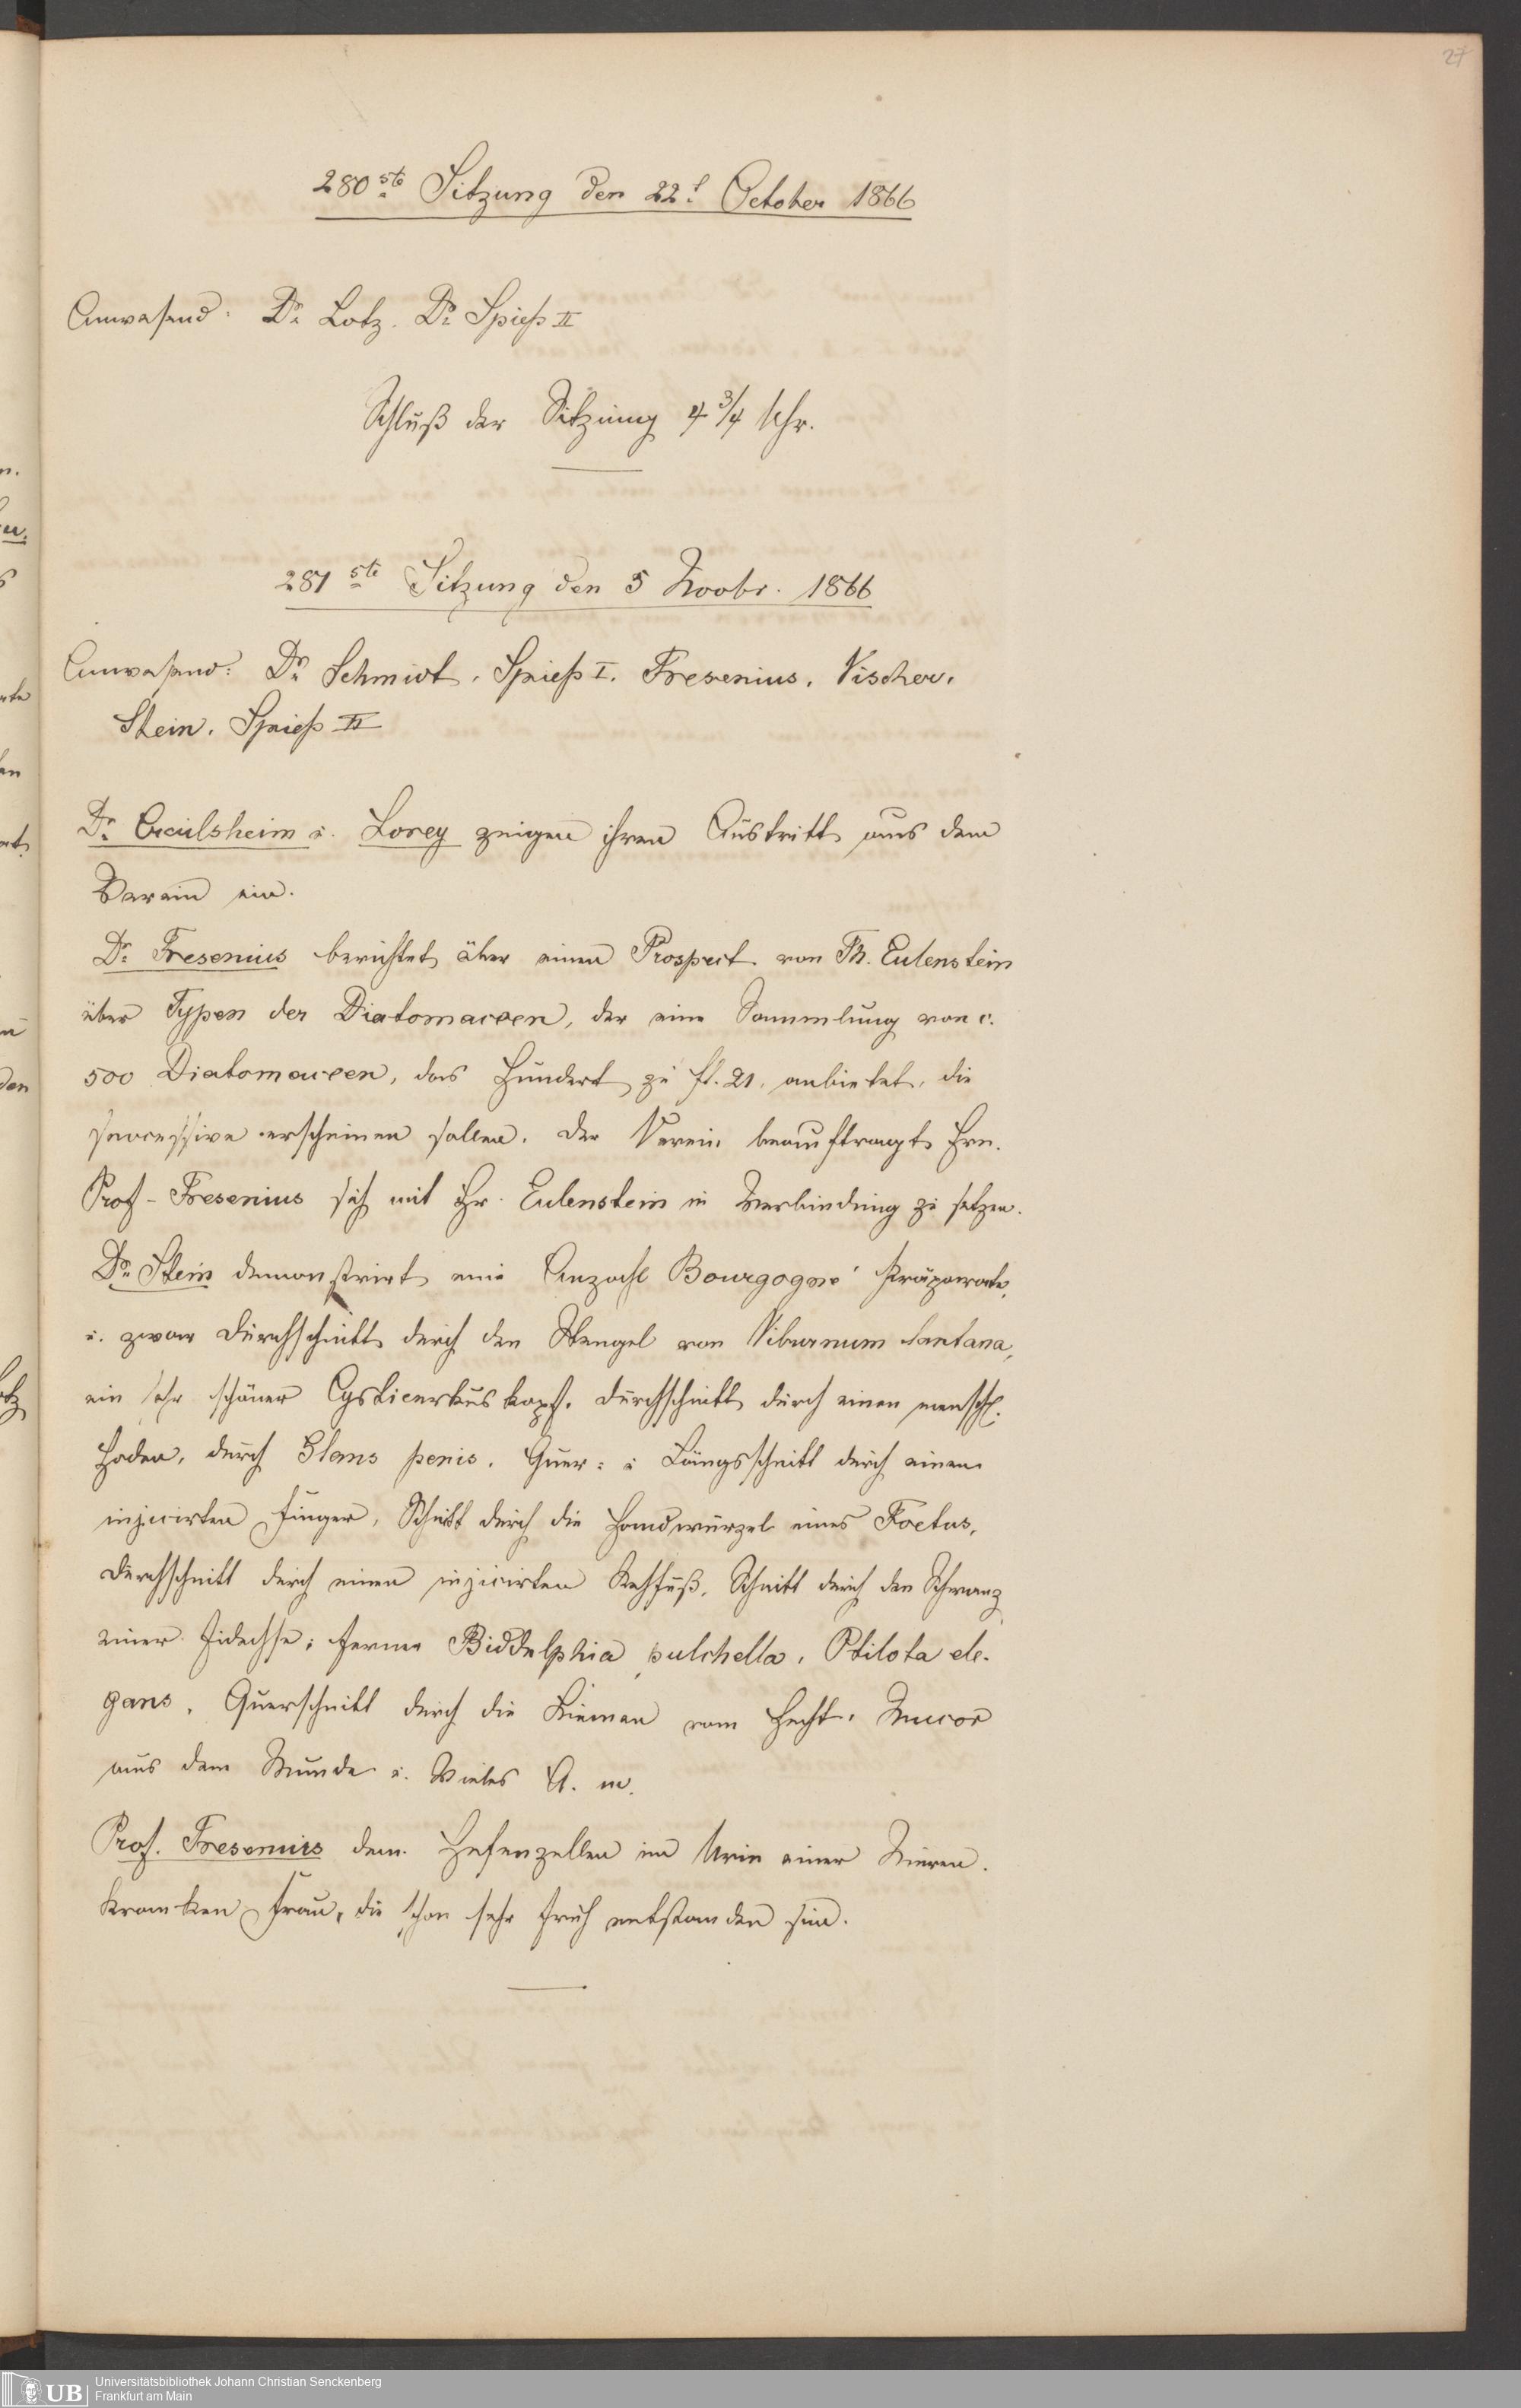 27
280ste Sitzung den 22t October 1866
Anwesend: Dr. Lotz. Dr. Spieß II
Schluß der Sitzung 4 3/4 Uhr.
281ste Sitzung den 5 Novbr. 1866
Anwesend: Dr. Schmidt, Spieß I. Fresenius. Vischer.
Stein. Spieß II
Dr. u. Lorey zeigen ihren Austritt aus dem
Verein ein.
Dr. Fresenius berichtet über einen Prospect von Th. Eulenstein
über Typen der Diatomaceen, der eine Sammlung von c.
500 Diatomaceen, das Hundert zu fl. 21. anbietet, die
successive erscheinen sollen. Der Verein beauftragt Hrn.
Prof. Fresenius sich mit Hr. Eulenstein in Verbindung zu setzen.
Dr. Stein demonstrirt eine Anzahl Bourgogne' Präparate,
u. zwar Durchschnitt durch den Stengel von Viburnum lantana,
ein sehr schöner Cysticerkuskopf. Durchschnitt durch einen menschl.
Hoden, durch Glans penis. Quer- u Längsschnitt durch einen
injicirten Finger, Schnitt durch die Handwurzel eines Foetus,
Durchschnitt durch einen injicirten Rehfuß. Schnitt durch den Schwanz
einer Eidechse; ferner Biddulphia pulchella, Ptilota ele-
gans. Querschnitt durch die Kiemen vom Hecht. Mucor
aus dem Munde u. Vieles A. m.
Prof. Fresenius dem. Hefenzellen im Urin einer Nieren-
kranken Frau, die schon sehr früh entstanden sind.
UB Universitätsbibliothek Johann Christian Senckenberg
Frankfurt am Main